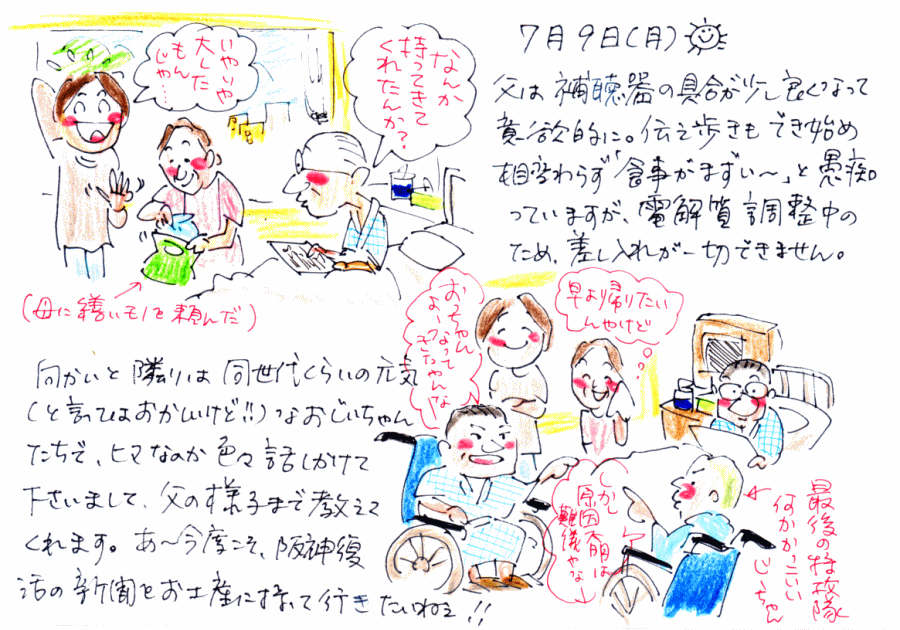 いやいや
大した
もんじゃ…
なんか
持ってきて
くれたんか?
(母に繕いモノを頼んだ)
7月9日(月)
父は補聴器の具合が少し良くなって
意欲的に。伝え歩きもでき始め
相変わらず「食事がまずい〜」と愚痴
っていますが、電解質調整中の
ため、差し入れが一切できません。
おっちゃん
なって
よーきたやんな
早よ帰りたい
んやけど
向かいと隣りは同世代くらいの元気
(と言ってはおかしいけど!!)なおじいちゃん
たちで、ヒマなのか色々話しかけて
下さいまして、父の様子まで教えて
くれます。あ〜今度こそ、阪神復
活の新聞をお土産に持って行きたいねぇ!!
しかし
原因不明は
難儀やな
最後の特攻隊
何かかっこいい
じーちゃん